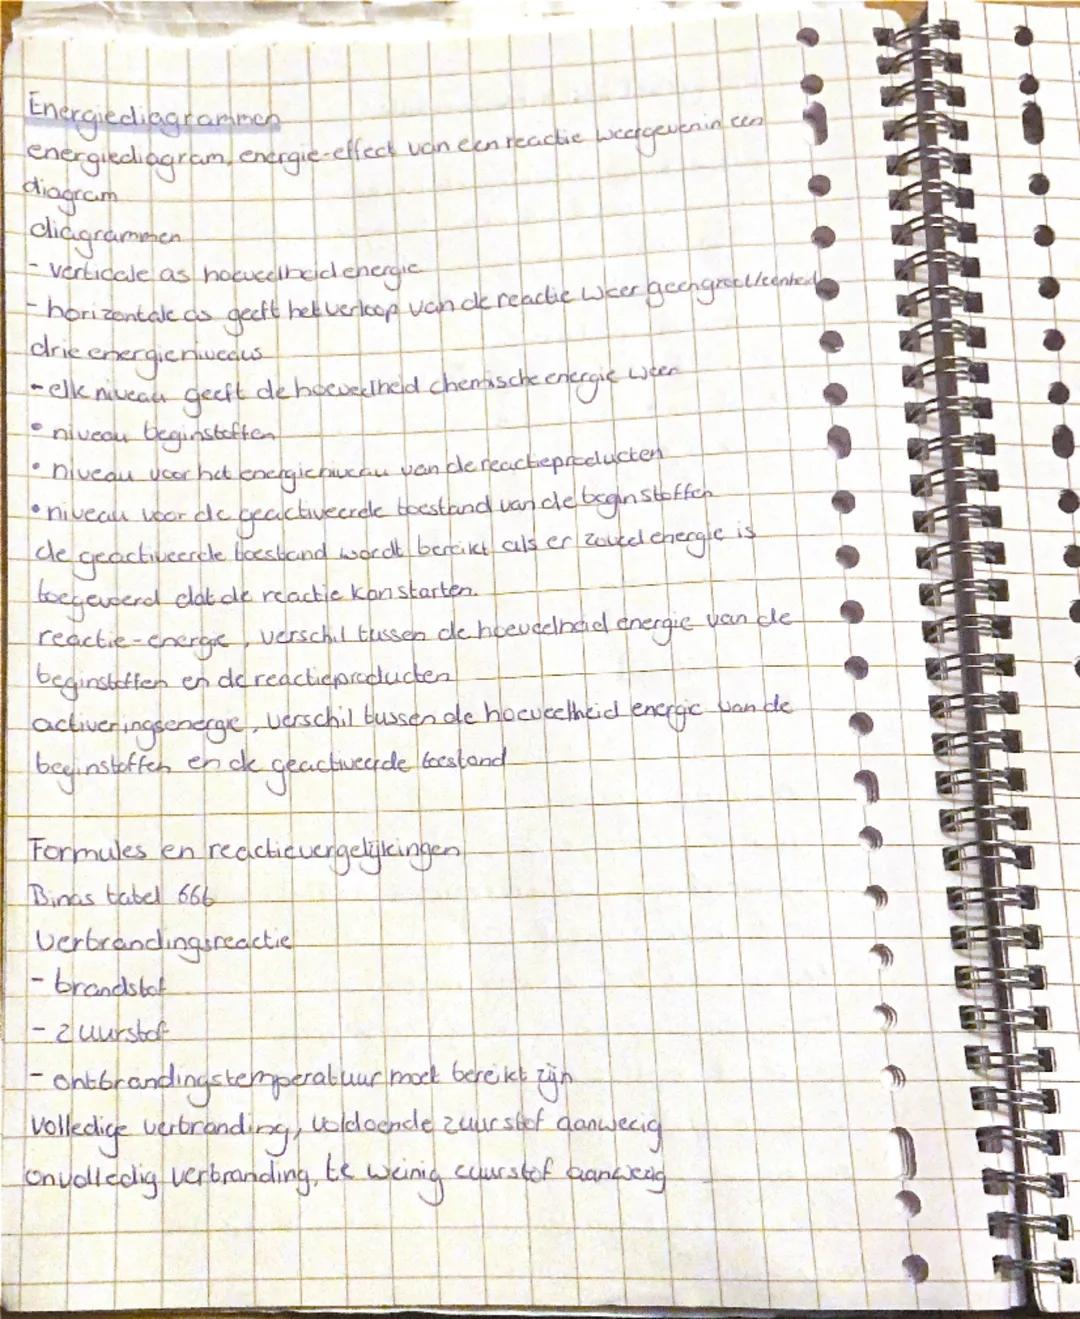 Energiediagrammen
energiediagram, energie-effect van een reactie weergeven in een
diagram
diagrammen
- verticale as hoeveelheid energie
- horizontale as geeft het verloop van de reactie weer geen grootte/eenheid
drie energieniveaus
- elk niveau geeft de hoeveelheid chemische energie weer
• niveau beginstoffen
• niveau voor het energieniveau van de reactieproducten
• niveau voor de geactiveerde toestand van de beginstoffen
de geactiveerde toestand wordt bereikt als er zoveel energie is
toegevoerd dat de reactie kan starten.
reactie-energie, verschil tussen de hoeveelheid energie van de
beginstoffen en de reactieproducten
activeringsenergie, verschil tussen de hoeveelheid energie van de
beginstoffen en de geactiveerde toestand
Formules en reactievergelijkingen
Binas tabel 66b
Verbrandingsreactie
- brandstof
- zuurstof
- ontbrandingstemperatuur moet bereikt zijn
volledige verbranding, voldoende zuurstof aanwezig
onvolledig verbranding, te weinig zuurstof aanwezig